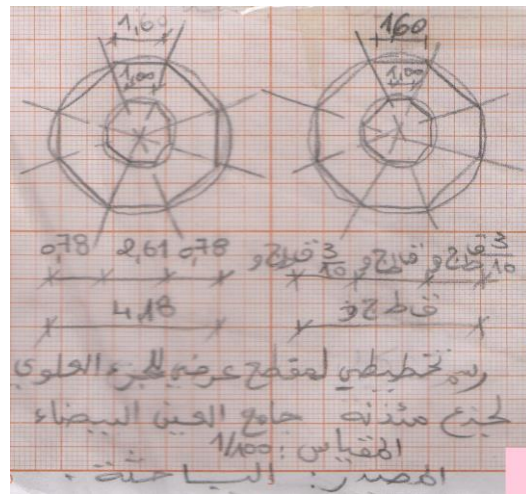 1,60 160
1,00 1,00
0,78 2,61 0,78 3/10
4,18
رسم تخطيطي لمقطع عرضي للجزء العلوي
لجذع مئذنة جامع العين البيضاء
المقياس: 1/100
المصدر: الباحثة.